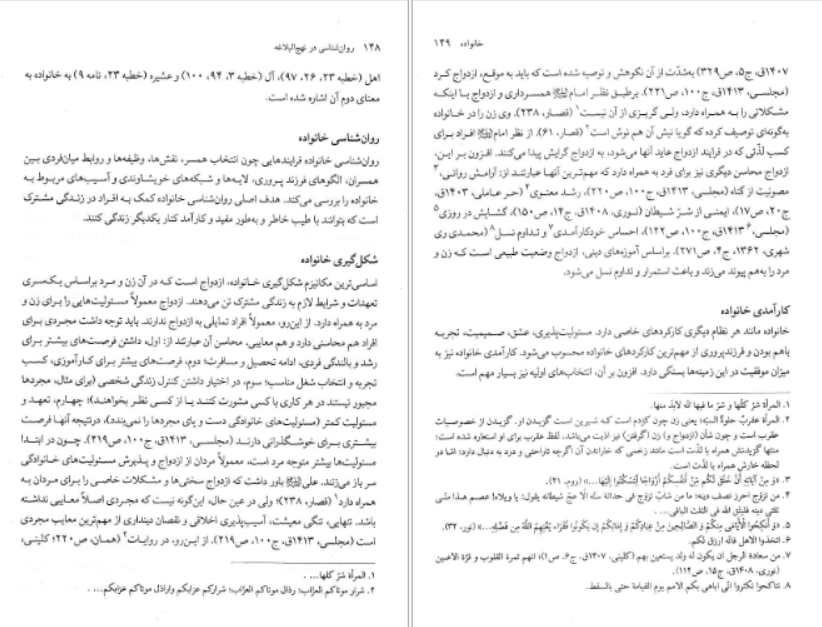 ۱۴۸ روان‌شناسی در نهج‌البلاغه
اهل (خطبه ۲۳، ۲۶، ۹۷)، آل (خطبه ۳، ۹۴، ۱۰۰) و عشیره (خطبه ۲۳، نامه ۹) به خانواده به
معنای دوم آن اشاره شده است.
روان‌شناسی خانواده
روان‌شناسی خانواده فرایندهایی چون انتخاب همسر، نقش‌ها، وظیفه‌ها و روابط میان‌فردی بین
همسران، الگوهای فرزند پروری، لایه‌ها و شبکه‌های خویشاوندی و آسیب‌های مربوط به
خانواده را بررسی می‌کند. هدف اصلی روان‌شناسی خانواده کمک به افراد در زندگی مشترک
است که بتوانند با طیب خاطر و به‌طور مفید و کارآمد کنار یکدیگر زندگی کنند.
شکل‌گیری خانواده
اساسی‌ترین مکانیزم شکل‌گیری خانواده، ازدواج است که در آن زن و مرد براساس یک‌سری
تعهدات و شرایط لازم به زندگی مشترک تن می‌دهند. ازدواج معمولاً مسئولیت‌هایی را برای زن و
مرد به همراه دارد. از این‌رو، معمولاً افراد تمایلی به ازدواج ندارند. باید توجه داشت مجردی برای
افراد هم محاسنی دارد و هم معایبی. محاسن آن عبارتند از: اول، داشتن فرصت‌های بیشتر برای
رشد و بالندگی فردی، ادامه تحصیل و مسافرت؛ دوم، فرصت‌های بیشتر برای کارآموزی، کسب
تجربه و انتخاب شغل مناسب؛ سوم، در اختیار داشتن کنترل زندگی شخصی (برای مثال، مجردها
مجبور نیستند در هر کاری با کسی مشورت کنند یا از کسی نظر بخواهند)؛ چهارم، تعهد و
مسئولیت کمتر (مسئولیت‌های خانوادگی دست و پای مجردها را نمی‌بندد)، درنتیجه آنها فرصت
بیشتری برای خوشگذرانی دارند (مجلسی، ۱۴۱۳ق، ج۱۰۰، ص۲۱۹). چون در ابتدا
مسئولیت‌ها بیشتر متوجه مرد است، معمولاً مردان از ازدواج و پذیرش مسئولیت‌های خانوادگی
سر باز می‌زنند. علی باور داشت که ازدواج سختی‌ها و مشکلات خاصی را برای مردان به
همراه دارد۱ (قصار، ۲۳۸)؛ ولی در عین حال، این‌گونه نیست که مجردی اصلاً معایبی نداشته
باشد. تنهایی، تنگی معیشت، آسیب‌پذیری اخلاقی و نقصان دینداری از مهم‌ترین معایب مجردی
است (مجلسی، ۱۴۱۳ق، ج۱۰۰، ص۲۱۹). از این‌رو، در روایات۲ (همان، ص۲۲۰؛ کلینی،
۱. المرأة شرّ کلها... .
۲. شرار موتاکم العزّاب؛ رذال موتاکم العزّاب؛ شرارکم عزابکم واراذل موتاکم عزابکم... .
خانواده ۱۴۹
۱۴۰۷ق، ج۵، ص۳۲۹) به‌شدّت از آن نکوهش و توصیه شده است که باید به موقع، ازدواج کرد
(مجلسی، ۱۴۱۳ق، ج۱۰۰، ص۲۲۱). برطبق نظر امام همسرداری و ازدواج با اینکه
مشکلاتی را به همراه دارد، ولی گریزی از آن نیست۱ (قصار، ۲۳۸). وی زن را در خانواده
به‌گونه‌ای توصیف کرده که گویا نیش آن هم نوش است۲ (قصار، ۶۱). از نظر امام افراد برای
کسب لذّتی که در فرایند ازدواج عاید آنها می‌شود، به ازدواج گرایش پیدا می‌کنند. افزون بر این،
ازدواج محاسن دیگری نیز برای فرد به همراه دارد که مهم‌ترین آنها عبارتند از: آرامش روانی،۳
مصونیت از گناه (مجلسی، ۱۴۱۳ق، ج۱۰۰، ص۲۲۰)، رشد معنوی۴ (حر عاملی، ۱۴۰۳ق،
ج۲۰، ص۱۷)، ایمنی از شرّ شیطان (نوری، ۱۴۰۸ق، ج۱۴، ص۱۵۰)، گشایش در روزی۵
(مجلسی،۶ ۱۴۱۳ق، ج۱۰۰، ص۱۲۲)، احساس خودکارآمدی۷ و تداوم نسل۸ (محمدی ری
شهری، ۱۳۶۲، ج۴، ص۲۷۱). براساس آموزه‌های دینی، ازدواج وضعیت طبیعی است که زن و
مرد را به‌هم پیوند می‌زند و باعث استمرار و تداوم نسل می‌شود.
کارآمدی خانواده
خانواده مانند هر نظام دیگری کارکردهای خاصی دارد. مسئولیت‌پذیری، عشق، صمیمیت، تجربه
باهم بودن و فرزندپروری از مهم‌ترین کارکردهای خانواده محسوب می‌شود. کارآمدی خانواده نیز به
میزان موفقیت در این زمینه‌ها بستگی دارد. افزون بر آن، انتخاب‌های اولیه نیز بسیار مهم است.
۱. المرأة شرّ کلّها و شرّ ما فیها انّه لابدّ منها.
۲. المرأة عقربٌ حلوة اللسبة؛ یعنی زن چون کژدم است کـه شیرین است گزیدن او. گزیدن از خصوصیات
عقرب است و چون شأن (ازدواج و) زن (گرفتن) نیز اذیت می‌باشد، لفظ عقرب برای او استعاره شده است؛
منتها گزیدنش همراه با لذّت است مانند زخمی که خاراندن آن اگرچه ناراحتی و درد به دنبال دارد؛ امّا در
لحظه خارش همراه با لذّت است.
۳. «وَ مِنْ آیَاتِهِ أَنْ خَلَقَ لَکُم مِّنْ أَنفُسِکُمْ أَزْوَاجًا لِّتَسْکُنُوا إِلَیْهَا...» (روم، ۲۱).
۴. من تزوّج احرز نصف دینه؛ ما من شابّ تزوّج فی حداثة سنّه الّا عجّ شیطانه یقول: یا ویلاه! عصم هذا منّی
ثلثی دینه فلیتّق الله فی الثلث الباقی... .
۵. «وَ أَنکِحُوا الْأَیَامَی مِنکُمْ وَ الصَّالِحِینَ مِنْ عِبَادِکُمْ وَ إِمَائِکُمْ إِن یَکُونُوا فُقَرَاء یُغْنِهِمُ اللَّهُ مِن فَضْلِهِ...» (نور، ۳۲).
۶. اتخذوا الاهل فانّه ارزق لکم.
۷. من سعادة الرجل ان یکون له ولد یستعین بهم (کلینی، ۱۴۰۷ق، ج۶، ص۱)؛ انهم ثمرة القلوب و قرّة الاعین
(نوری، ۱۴۰۸ق، ج۱۵، ص۱۱۴).
۸. تناکحوا تکثروا انّی اباهی بکم الامم یوم القیامة حتی بالسقط.